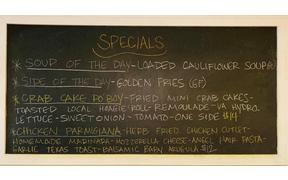 SPECIALS
* SOUP OF THE DAY - LOADED CAULIFLOWER SOUP
* SIDE OF THE DAY - GOLDEN FRIES (GF)
* CRAB CAKE PO BOY - FRIED MINI CRAB CAKES -
TOASTED LOCAL HOAGIE - HOLL-REMOULADE - VA HYDRO
LETTUCE - SWEET ONION - TOMATO - ONE SIDE $14
* CHICKEN PARMIGIANA - HERB FRIED CHICKEN CUTLET -
HOMEMADE MARINARA - MOZZERELLA CHEESE - ANGEL HAIR PASTA -
GARLIC TEXAS TOAST - BALSAMIC BARN ARUGULA $12